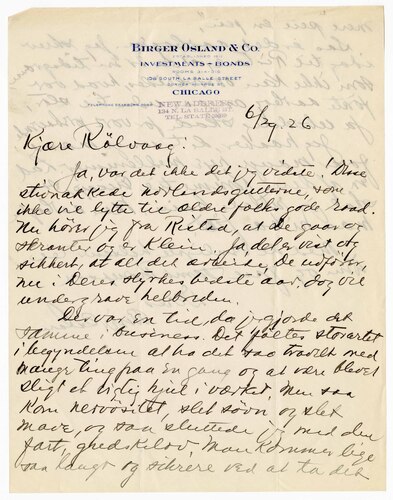 BIRGER OSLAND & CO.
INVESTMENTS - BONDS
108 SOUTH LA SALLE STREET
CHICAGO
NEW ADDRESS
134 N. LA SALLE ST.
TEL. STATE
6/29, 26
Kjære Rölvaag:
Ja, var det ikke det jeg vidste! Disse
stivnakkede nordlandsgutterne, som
ikke vil lytte til ældre folks gode raad.
Nu hører jeg fra Ristad, at De gaar og
skranter og er klein. Ja det er vist og
sikkert, at alt det arbeide, De udfører,
nu i Deres styrkes bedste aar, dog vil
undergrave helbreden.
Der var en tid, da jeg gjorde det
samme i business. Det føltes storartet
i begyndelsen at ha det saa travelt med
mange ting paa en gang og at være blevet
sligt et vigtig hjul i værket. Men saa
kom nervøsitet, slet søvn, og slet
mave, og saa sluttede jeg med den
fart, gneds kelov. Man kommer lige
saa langt og sikrere ved at ta det